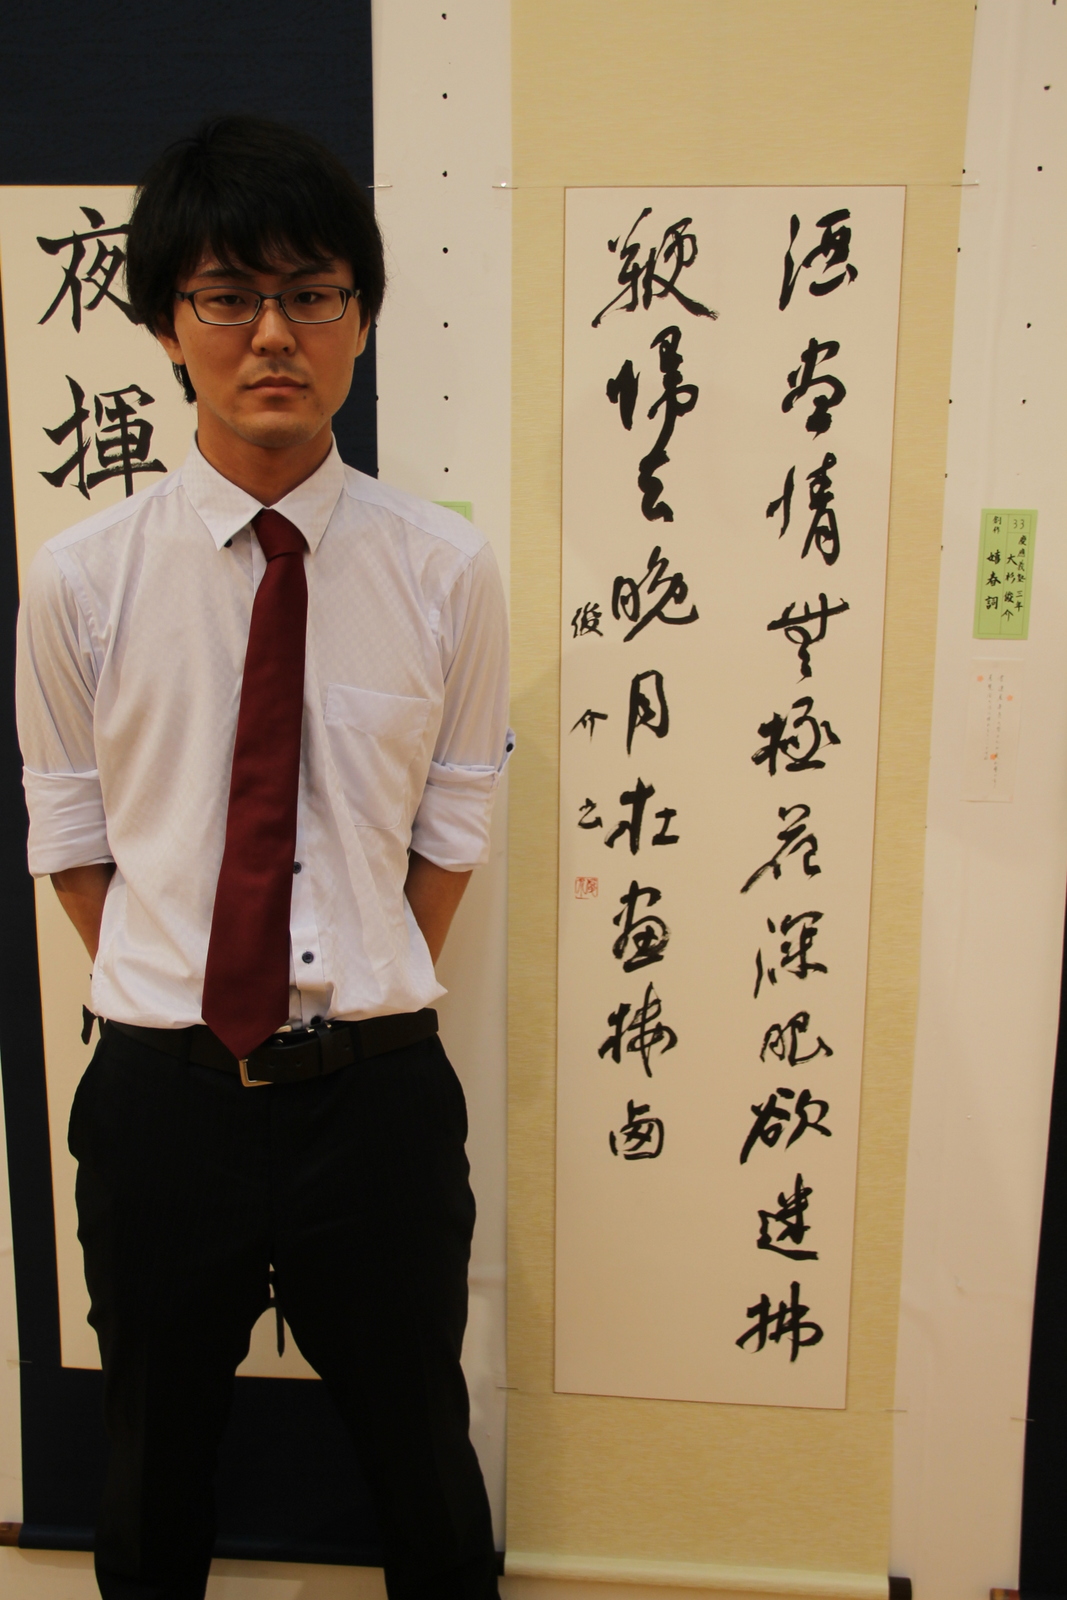 33 慶應義塾 三年
大杉俊介
創作 嬉春詞
酒 情無極花深眼欲迷拂
鞭帰去晩月在畫楼西
俊介
夜揮